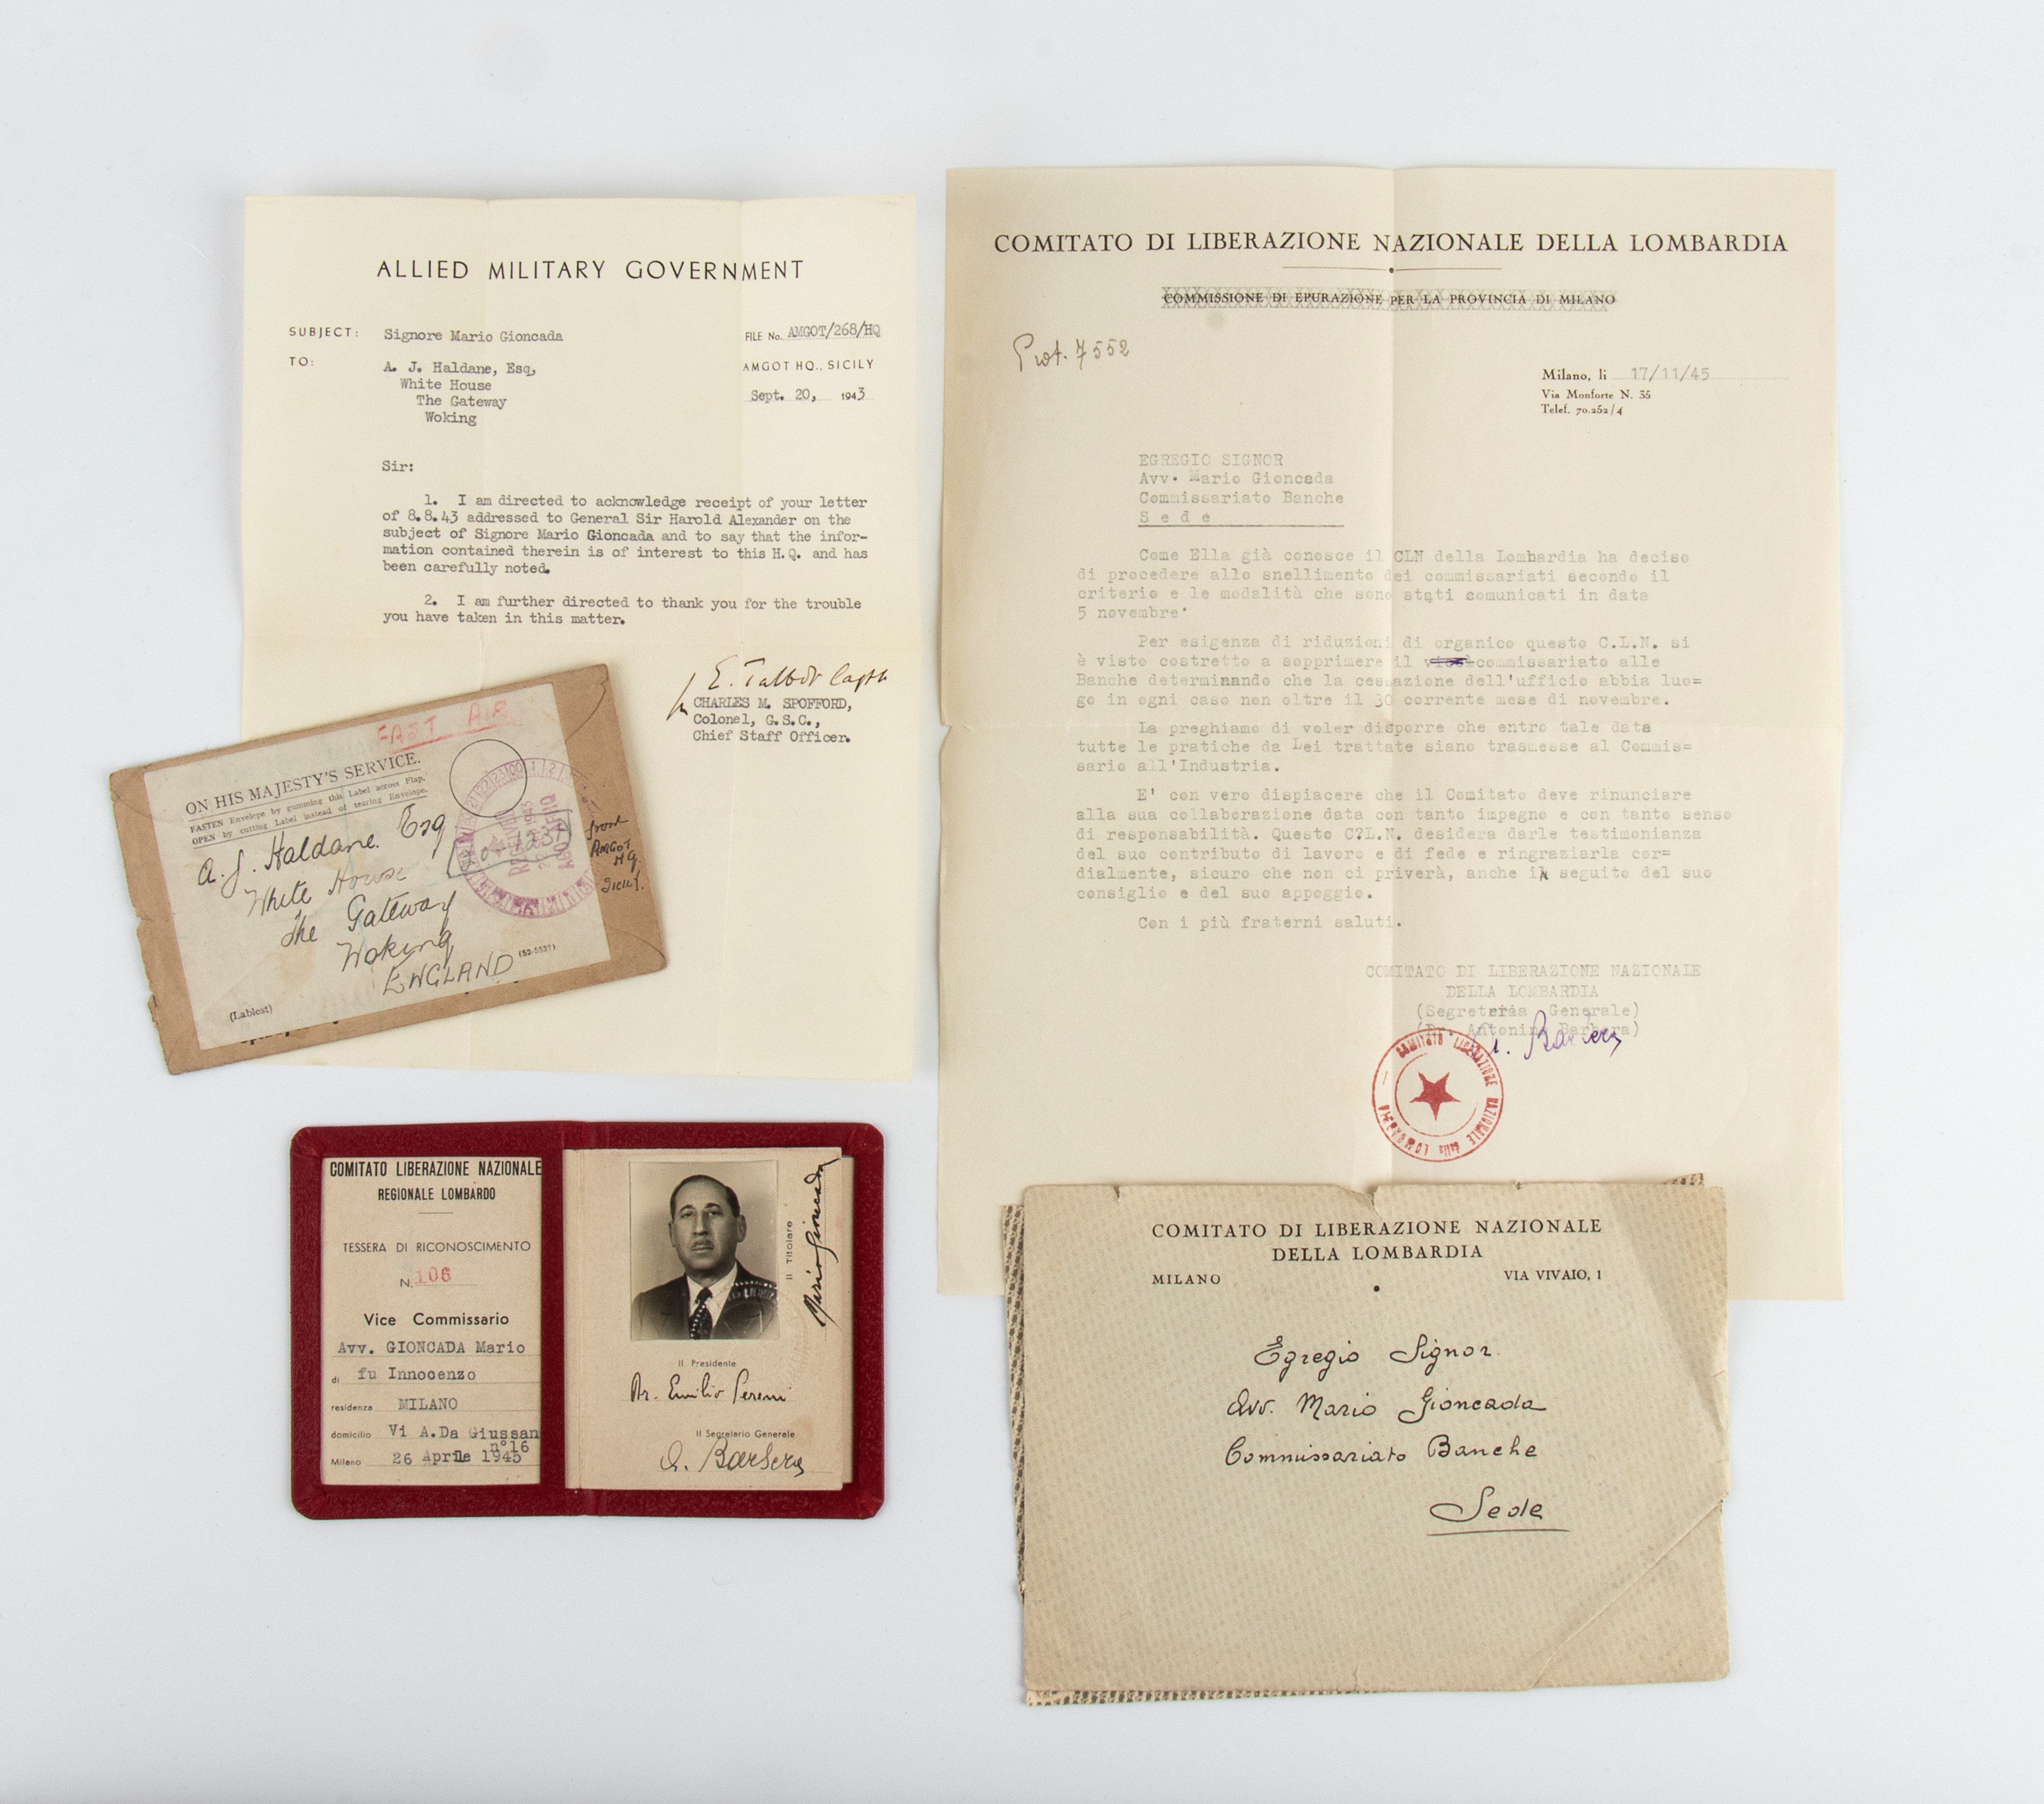 ALLIED MILITARY GOVERNMENT
SUBJECT: Signore Mario Gioncada
FILE No. AMGOT/268/HQ
TO: A. J. Haldane, Esq,
White House
The Gateway
Woking
AMGOT HQ., SICILY
Sept. 20, 1943
Sir:
1. I am directed to acknowledge receipt of your letter
of 8.8.43 addressed to General Sir Harold Alexander on the
subject of Signore Mario Gioncada and to say that the infor-
mation contained therein is of interest to this H.Q. and has
been carefully noted.
2. I am further directed to thank you for the trouble
you have taken in this matter.
E. Talbot Captn
CHARLES M. SPOFFORD,
Colonel, G.S.C.,
Chief Staff Officer.
FAST AIR
ON HIS MAJESTY'S SERVICE.
FASTEN Envelope by gumming this Label across Flap.
OPEN by cutting Label instead of tearing Envelope.
A. J. Haldane. Esq
White House
The Gateway
Woking
ENGLAND
(52-5537)
(Lablest)
from
AMGOT
HQ.
Sicily.
RECEIVED
1943
COMITATO LIBERAZIONE NAZIONALE
REGIONALE LOMBARDO
TESSERA DI RICONOSCIMENTO
N. 106
Vice Commissario
Avv. GIONCADA Mario
di fu Innocenzo
residenza MILANO
domicilio Vi A.Da Giussan
n°16
Milano 26 Aprile 1945
Il Titolare
Mario Gioncada
Il Presidente
Dr. Emilio Sereni
Il Segretario Generale
A. Barbera
COMITATO DI LIBERAZIONE NAZIONALE DELLA LOMBARDIA
COMMISSIONE DI EPURAZIONE PER LA PROVINCIA DI MILANO
Prot. 7552
Milano, li 17/11/45
Via Monforte N. 35
Telef. 70.252/4
EGREGIO SIGNOR
Avv. Mario Gioncada
Commissariato Banche
Sede
Come Ella già conosce il CLN della Lombardia ha deciso
di procedere allo snellimento dei commissariati secondo il
criterio e le modalità che sono stati comunicati in data
5 novembre.
Per esigenza di riduzioni di organico questo C.L.N. si
è visto costretto a sopprimere il vice commissariato alle
Banche determinando che la cessazione dell'ufficio abbia luo=
go in ogni caso non oltre il 30 corrente mese di novembre.
La preghiamo di voler disporre che entro tale data
tutte le pratiche da Lei trattate siano trasmesse al Commis=
sario all'Industria.
E' con vero dispiacere che il Comitato deve rinunciare
alla sua collaborazione data con tanto impegno e con tanto senso
di responsabilità. Questo C?L.N. desidera darle testimonianza
del suo contributo di lavoro e di fede e ringraziarla cor=
dialmente, sicuro che non ci priverà, anche in seguito del suo
consiglio e del suo appoggio.
Con i più fraterni saluti.
COMITATO DI LIBERAZIONE NAZIONALE
DELLA LOMBARDIA
(Segreteria Generale)
(Dr. Antonino Barbera)
A. Barbera
COMITATO LIBERAZIONE NAZIONALE della LOMBARDIA
COMITATO DI LIBERAZIONE NAZIONALE
DELLA LOMBARDIA
MILANO
VIA VIVAIO, 1
Egregio Signor
Avv. Mario Gioncada
Commissariato Banche
Sede